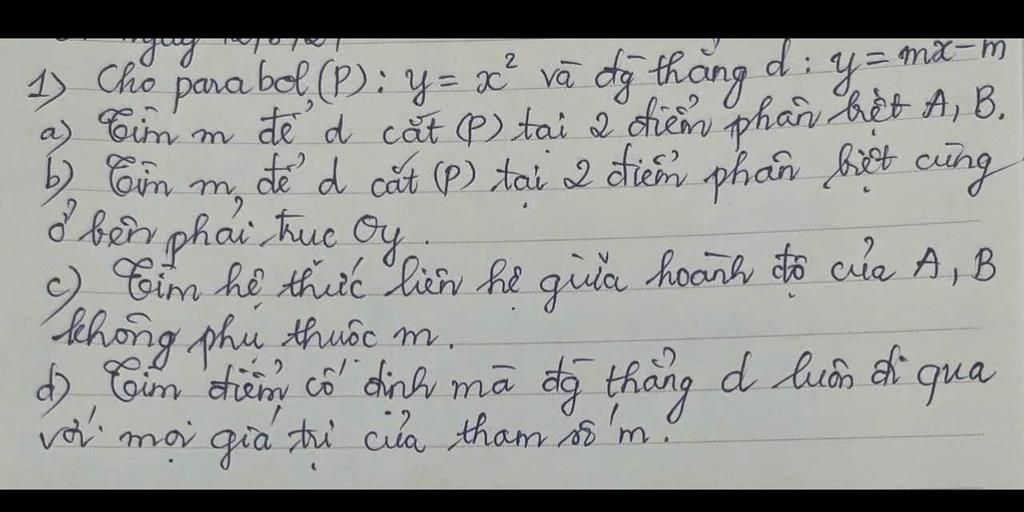 1) Cho parabol (P): y = x² và đg thẳng d: y = mx - m
a) Tìm m để d cắt (P) tại 2 điểm phân biệt A, B.
b) Tìm m để d cắt (P) tại 2 điểm phân biệt cùng
ở bên phải trục Oy.
c) Tìm hệ thức liên hệ giữa hoành độ của A, B
không phụ thuộc m.
d) Tìm điểm cố định mà đg thẳng d luôn đi qua
với mọi giá trị của tham số m.